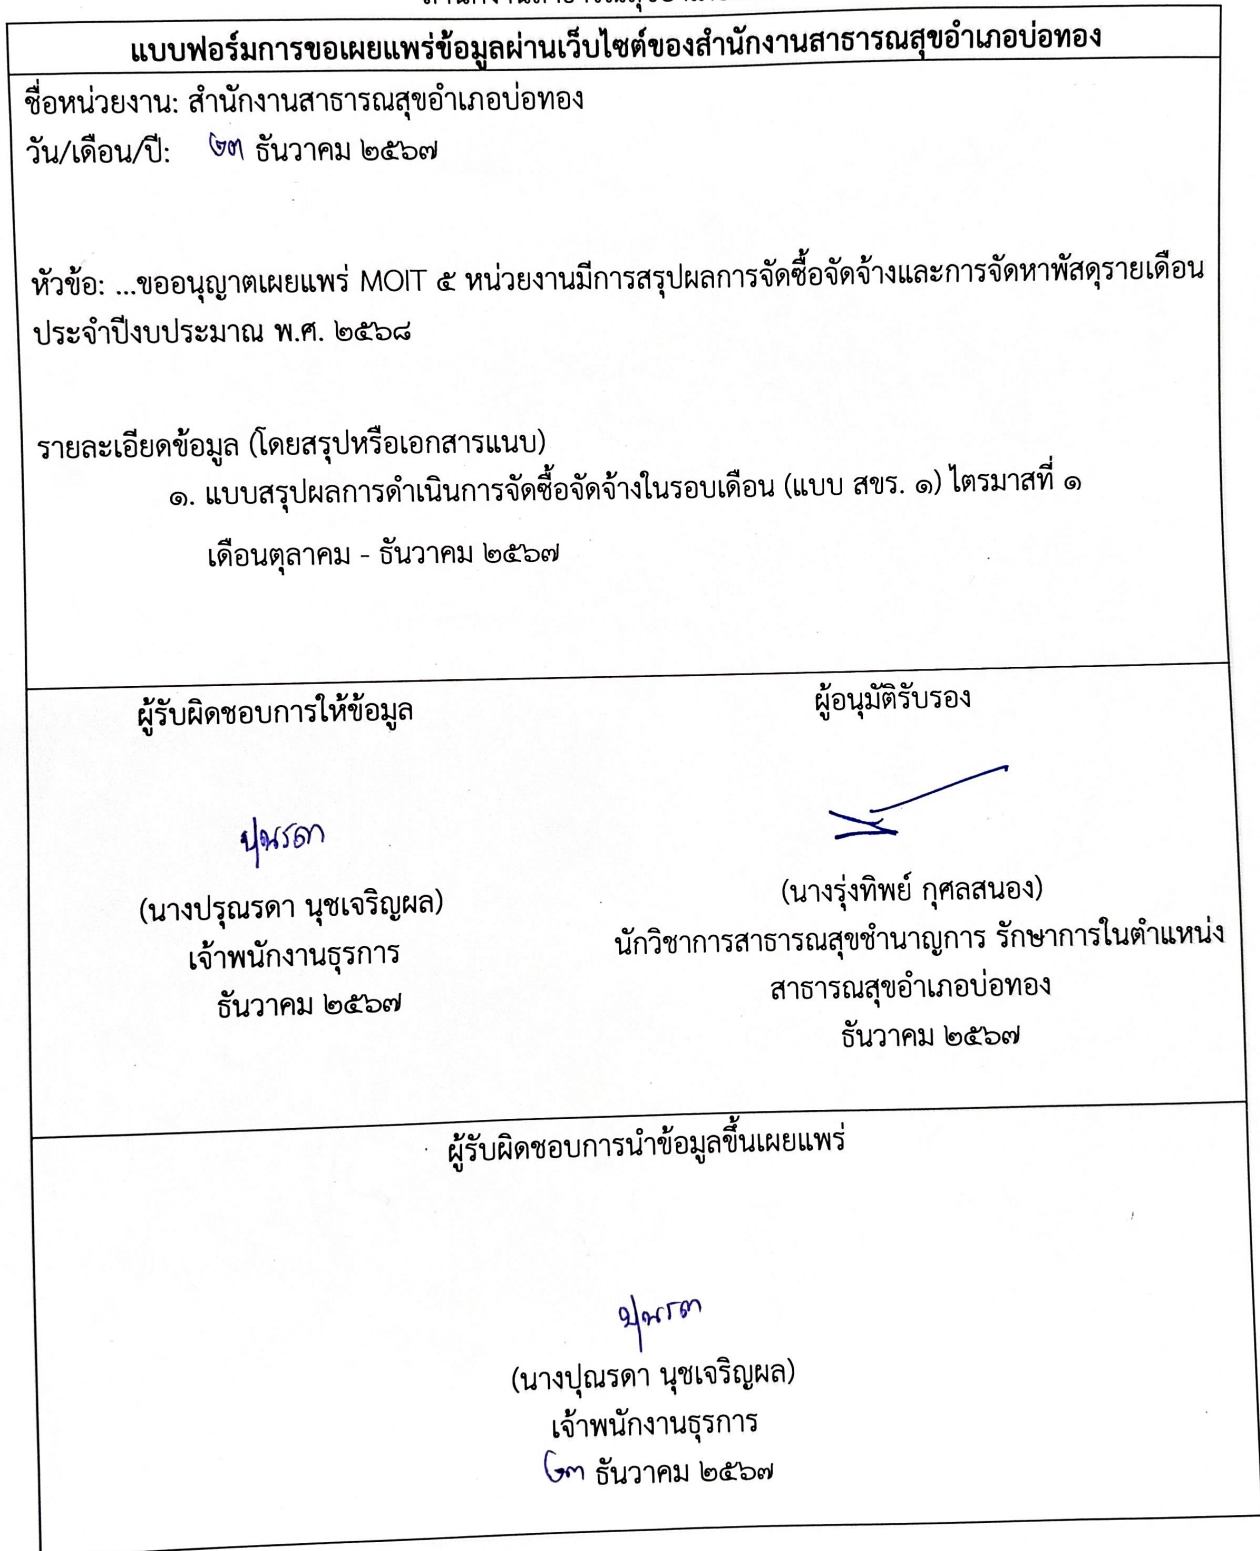 แบบฟอร์มการขอเผยแพร่ข้อมูลผ่านเว็บไซต์ของสำนักงานสาธารณสุขอำเภอบ่อทอง
ชื่อหน่วยงาน: สำนักงานสาธารณสุขอำเภอบ่อทอง
วัน/เดือน/ปี: ๒๓ ธันวาคม ๒๕๖๗
หัวข้อ: ...ขออนุญาตเผยแพร่ MOIT ๕ หน่วยงานมีการสรุปผลการจัดซื้อจัดจ้างและการจัดหาพัสดุรายเดือน
ประจำปีงบประมาณ พ.ศ. ๒๕๖๘
รายละเอียดข้อมูล (โดยสรุปหรือเอกสารแนบ)
๑. แบบสรุปผลการดำเนินการจัดซื้อจัดจ้างในรอบเดือน (แบบ สขร. ๑) ไตรมาสที่ ๑
เดือนตุลาคม - ธันวาคม ๒๕๖๗
ผู้รับผิดชอบการให้ข้อมูล
ผู้อนุมัติรับรอง
ปุณรดา
(นางปรุณรดา นุชเจริญผล)
เจ้าพนักงานธุรการ
ธันวาคม ๒๕๖๗
(นางรุ่งทิพย์ กุศลสนอง)
นักวิชาการสาธารณสุขชำนาญการ รักษาการในตำแหน่ง
สาธารณสุขอำเภอบ่อทอง
ธันวาคม ๒๕๖๗
ผู้รับผิดชอบการนำข้อมูลขึ้นเผยแพร่
ปุณรดา
(นางปุณรดา นุชเจริญผล)
เจ้าพนักงานธุรการ
๒๓ ธันวาคม ๒๕๖๗